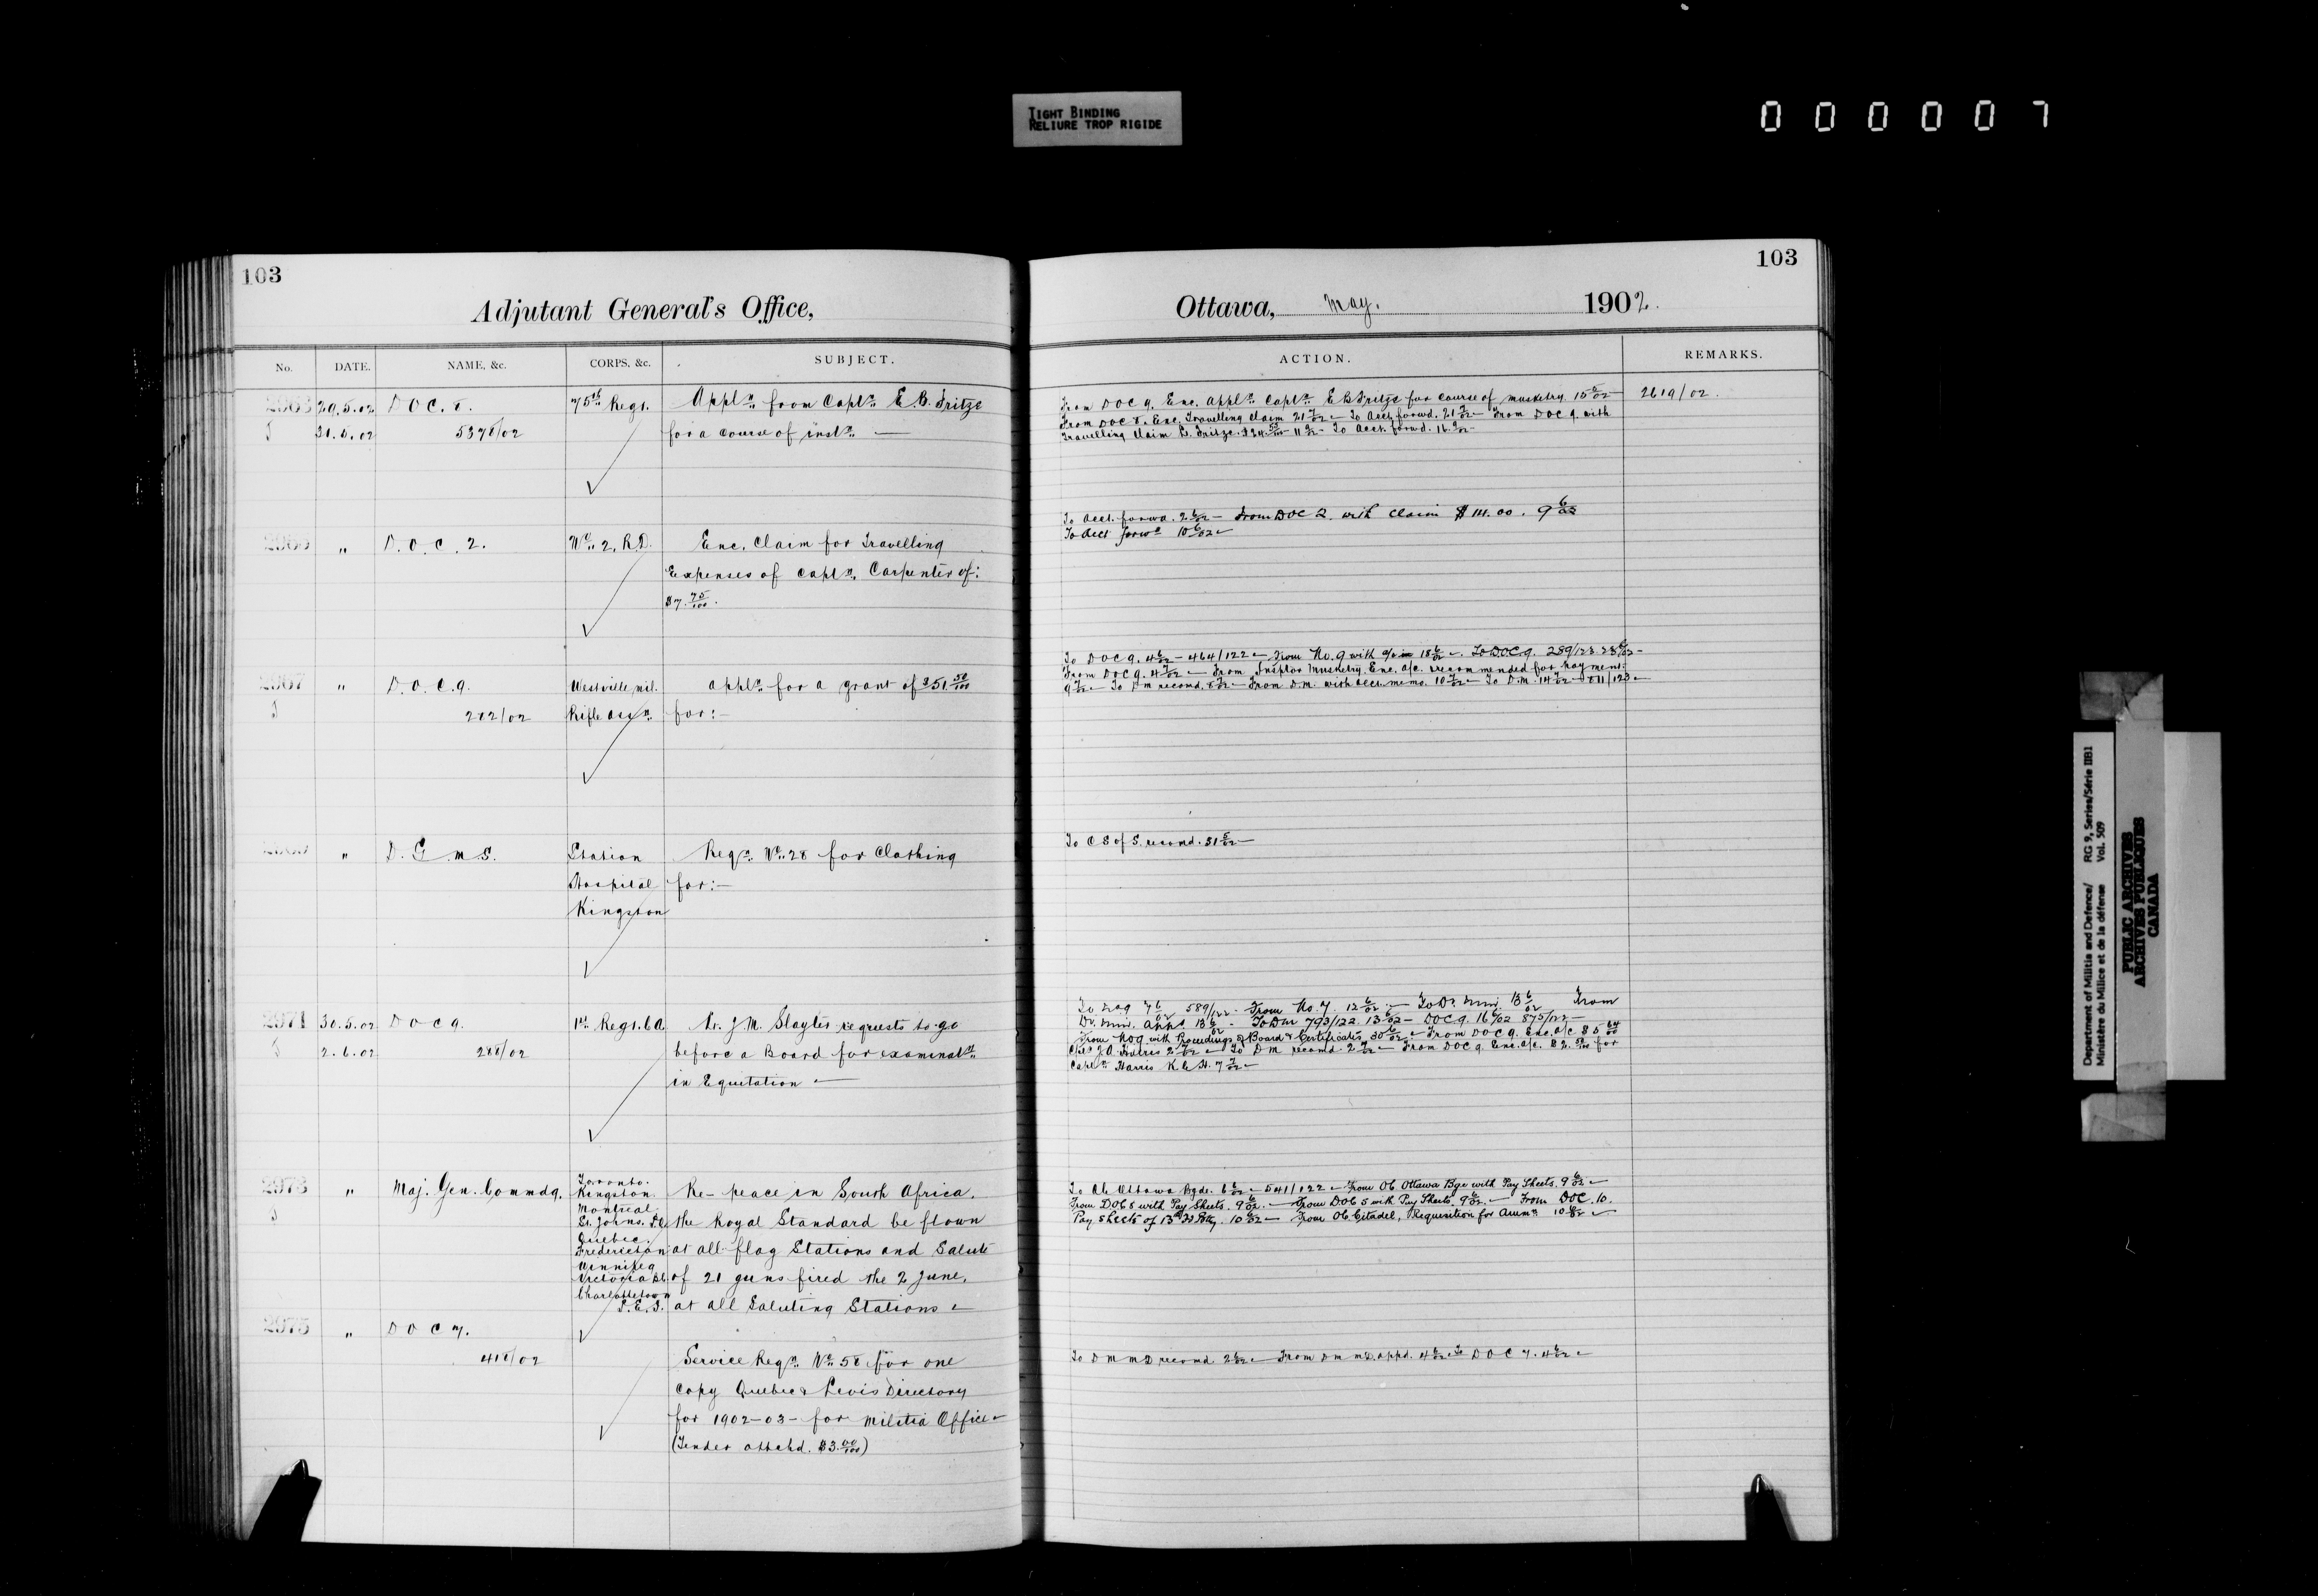 TIGHT BINDING
RELIURE TROP RIGIDE
000007
103
Adjutant General's Office,
No. DATE. NAME, &c. CORPS, &c. SUBJECT.
2963 29.5.02 D O C. 8. 75th Regt. Appln. from Captn. E. B. Fritze
31.5.02 5378/02 for a course of instn. —
2965 " D. O. C. 2. No. 2. R.D. Enc. Claim for Travelling
Expenses of Captn. Carpenter of:
$7. 75/100.
2967 " D. O. C. 9. Westville mil. Appln. for a grant of $51. 50/100
282/02 Rifle Assn. for:—
" D. G. M. S. Station Reqn. No. 28 for Clothing
Hospital for:—
Kingston
2971 30.5.02 D O C 9. 1st Regt. C A Lt. J. M. Slayter requests to go
2.6.02 288/02 before a Board for examinatn.
in Equitation —
2973 " Maj. Gen. Commdg. Toronto. Re- peace in South Africa.
Kingston.
Montreal.
St. Johns. P.Q. the Royal Standard be flown
Quebec.
Fredericton at all flag Stations and Salute
Winnipeg
Victoria B.C. of 21 guns fired the 2 June,
Charlottetown
P. E. I. at all Saluting Stations —
2975 " D O C 7.
418/02 Service Reqn. No. 58 for one
Copy Quebec & Levis Directory
for 1902-03- for Militia Office —
(Tender attchd. $3. 00/100)
103
Ottawa, May. 1902.
ACTION. REMARKS.
From D O C 9. Enc. Appln. Captn. E B Fritze for course of musketry. 15 5/02 — 2619/02.
From D O C 8. Enc. Travelling Claim 21 7/02 — To Acct. forwd. 21 7/02 — From D O C 9 with
Travelling Claim Fritze. — To Acct. forwd. 16.
To Acct. forwd. 2 6/02 — From D O C 2. with Claim $111.00. 9 6/02
To Acct forwd 10 6/02 —
To D O C 9. 4 6/02 — 464/122 — From No. 9 with a/c 18 6/02 —. To D.O.C. 9. 289/123. 23 6/02 —
From D O C 9. 4 7/02 — From Insptor Musketry Enc. a/c. recommended for payment.
9 7/02 — To D m recomd. — From D.M. with Acct. memo. 10 7/02 — To D.M. 14 7/02
To C S of S. recomd. 31 5/02 —
589/122 — From No. 9. 12 6/02 — 13 6/02 From
13 6/02 — To Dm 793/122. 13 6/02 — D O C 9. 16 6/02 873/122 —
From No 9 with Proceedings of Board & Certificates 30 6/02 — From D O C 9. Enc. a/c
2 7/02 — To D M recomd. 2 7/02 — From D O C 9. Enc. a/c. for
Captn. Harris K. C. H. 7 7/02 —
To O.C. Ottawa Bgde. 6 6/02 — 541/122 — From O.C. Ottawa Bge with Pay Sheets. 9 6/02 —
From D O C 5 with Pay Sheets. 9 6/02. — From D O C 5 with Pay Sheets 9 6/02. — From D O C. 10.
Pay Sheets of 13th Fd Btty. 10 6/02 — From O.C. Citadel, Requisition for Ammn. 10 6/02 —
To D M recomd 2 6/02 — From appd. 4 6/02 — To D O C 7. 4 6/02 —
Department of Militia and Defence/ RG 9, Series/Série IIB1
Ministère du Milice et de la défense Vol. 509
PUBLIC ARCHIVES
ARCHIVES PUBLIQUES
CANADA